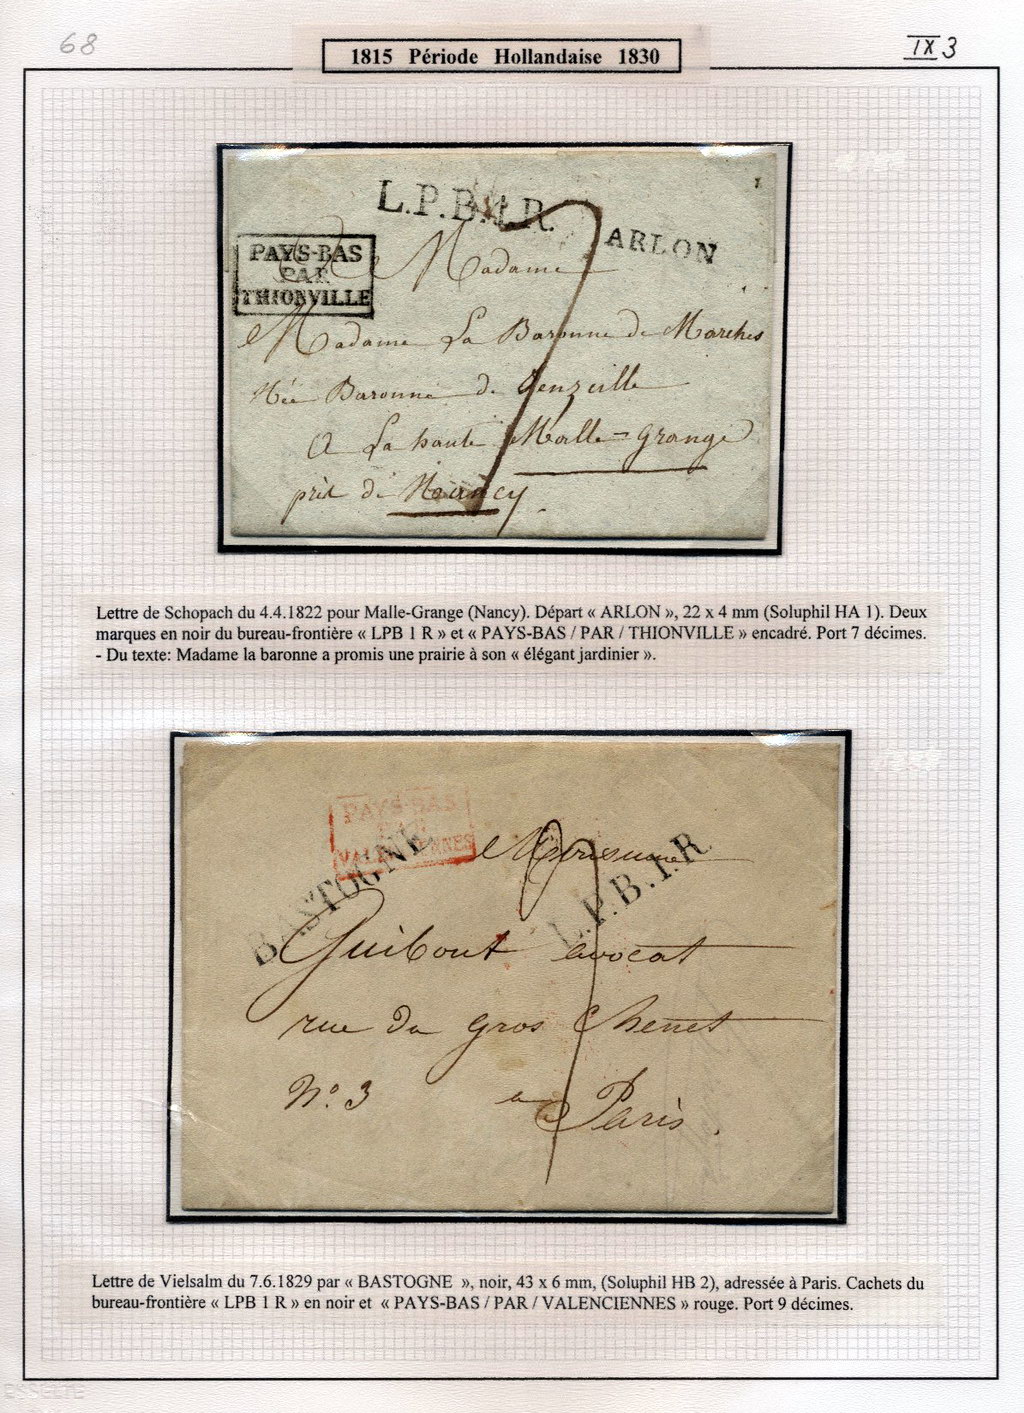 68
1815 Période Hollandaise 1830
IX 3
L.P.B.1.R.
ARLON
PAYS-BAS
PAR
THIONVILLE
Madame
Madame La Baronne de Marches
Née Baronne de
A La haute Malle-Grange
près de Nancy
7
Lettre de Schopach du 4.4.1822 pour Malle-Grange (Nancy). Départ « ARLON », 22 x 4 mm (Soluphil HA 1). Deux
marques en noir du bureau-frontière « LPB 1 R » et « PAYS-BAS / PAR / THIONVILLE » encadré. Port 7 décimes.
- Du texte: Madame la baronne a promis une prairie à son « élégant jardinier ».
PAYS-BAS
PAR
VALENCIENNES
BASTOGNE
L.P.B.1.R
Monsieur
Guibout avocat
rue du gros Chenet
N° 3 a Paris.
9
Lettre de Vielsalm du 7.6.1829 par « BASTOGNE », noir, 43 x 6 mm, (Soluphil HB 2), adressée à Paris. Cachets du
bureau-frontière « LPB 1 R » en noir et « PAYS-BAS / PAR / VALENCIENNES » rouge. Port 9 décimes.
ESSELTE